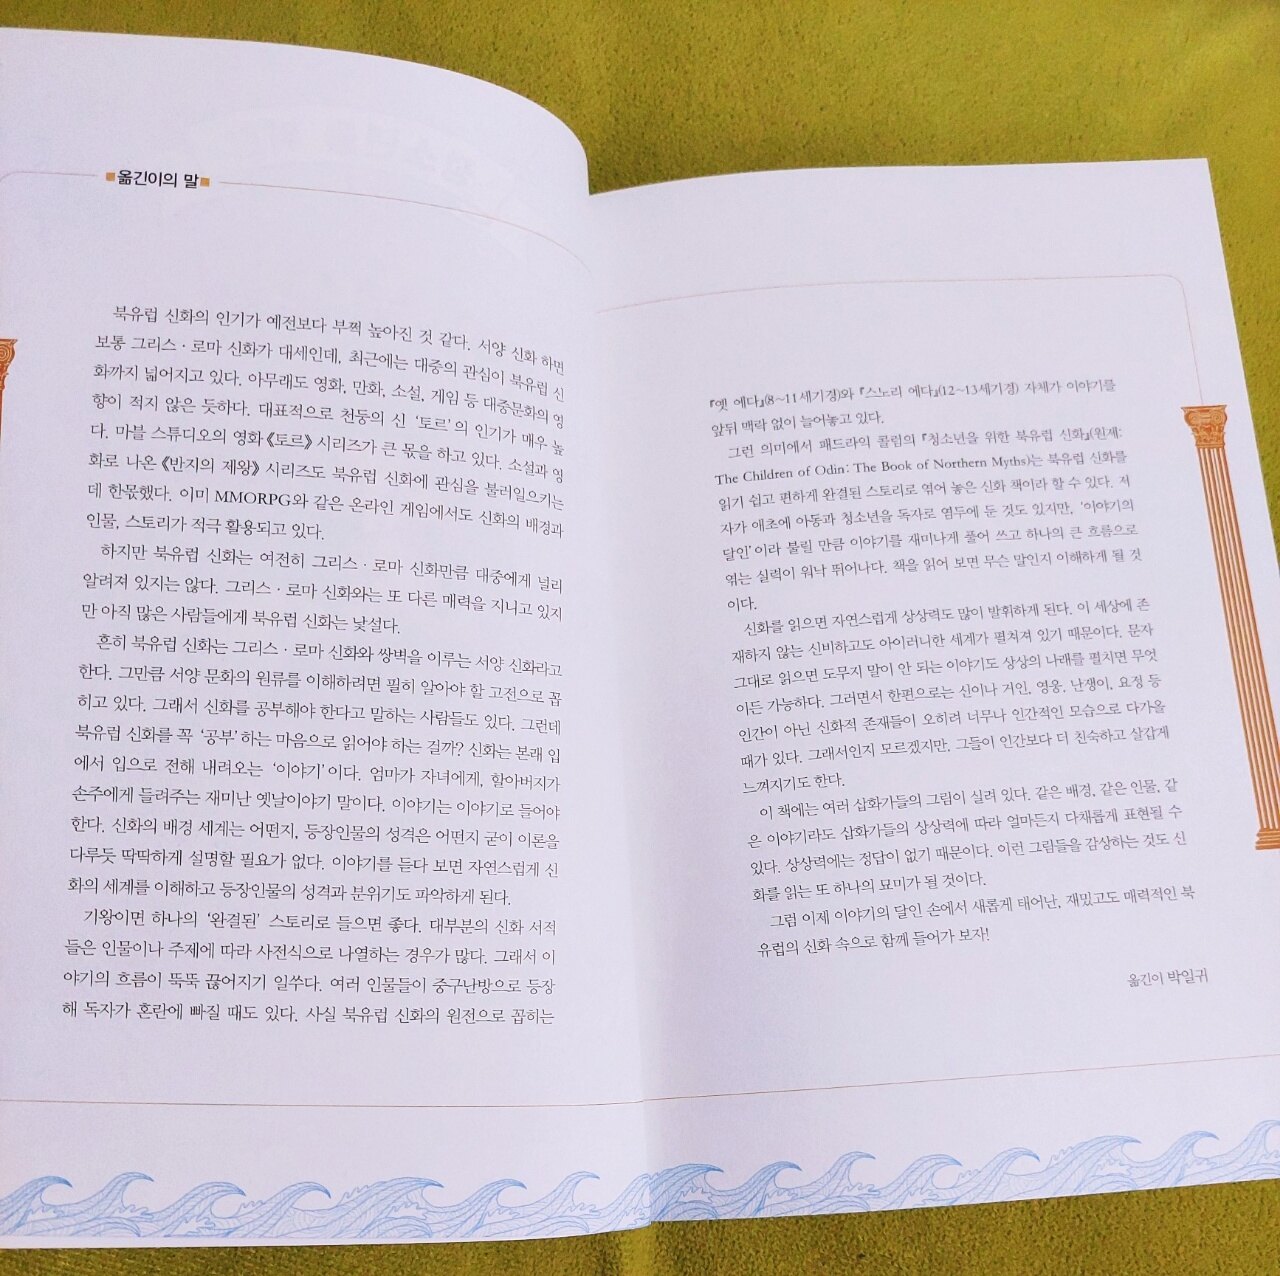 옮긴이의 말
북유럽 신화의 인기가 예전보다 부쩍 높아진 것 같다. 서양 신화 하면
보통 그리스·로마 신화가 대세인데, 최근에는 대중의 관심이 북유럽 신
화까지 넓어지고 있다. 아무래도 영화, 만화, 소설, 게임 등 대중문화의 영
향이 적지 않은 듯하다. 대표적으로 천둥의 신 ‘토르’의 인기가 매우 높
다. 마블 스튜디오의 영화 《토르》 시리즈가 큰 몫을 하고 있다. 소설과 영
화로 나온 《반지의 제왕》 시리즈도 북유럽 신화에 관심을 불러일으키는
데 한몫했다. 이미 MMORPG와 같은 온라인 게임에서도 신화의 배경과
인물, 스토리가 적극 활용되고 있다.
하지만 북유럽 신화는 여전히 그리스·로마 신화만큼 대중에게 널리
알려져 있지는 않다. 그리스·로마 신화와는 또 다른 매력을 지니고 있지
만 아직 많은 사람들에게 북유럽 신화는 낯설다.
흔히 북유럽 신화는 그리스·로마 신화와 쌍벽을 이루는 서양 신화라고
한다. 그만큼 서양 문화의 원류를 이해하려면 필히 알아야 할 고전으로 꼽
히고 있다. 그래서 신화를 공부해야 한다고 말하는 사람들도 있다. 그런데
북유럽 신화를 꼭 ‘공부’하는 마음으로 읽어야 하는 걸까? 신화는 본래 입
에서 입으로 전해 내려오는 ‘이야기’이다. 엄마가 자녀에게, 할아버지가
손주에게 들려주는 재미난 옛날이야기 말이다. 이야기는 이야기로 들어야
한다. 신화의 배경 세계는 어떤지, 등장인물의 성격은 어떤지 굳이 이론을
다루듯 딱딱하게 설명할 필요가 없다. 이야기를 듣다 보면 자연스럽게 신
화의 세계를 이해하고 등장인물의 성격과 분위기도 파악하게 된다.
기왕이면 하나의 ‘완결된’ 스토리로 들으면 좋다. 대부분의 신화 서적
들은 인물이나 주제에 따라 사전식으로 나열하는 경우가 많다. 그래서 이
야기의 흐름이 뚝뚝 끊어지기 일쑤다. 여러 인물들이 중구난방으로 등장
해 독자가 혼란에 빠질 때도 있다. 사실 북유럽 신화의 원전으로 꼽히는
『옛 에다』(8~11세기경)와 『스노리 에다』(12~13세기경) 자체가 이야기를
앞뒤 맥락 없이 늘어놓고 있다.
그런 의미에서 패드라의 콜럼의 『청소년을 위한 북유럽 신화』(원제:
The Children of Odin: The Book of Northern Myths)는 북유럽 신화를
읽기 쉽고 편하게 완결된 스토리로 엮어 놓은 신화 책이라 할 수 있다. 저
자가 애초에 아동과 청소년을 독자로 염두에 둔 것도 있지만, ‘이야기의
달인’이라 불릴 만큼 이야기를 재미나게 풀어 쓰고 하나의 큰 흐름으로
엮는 실력이 워낙 뛰어나다. 책을 읽어 보면 무슨 말인지 이해하게 될 것
이다.
신화를 읽으면 자연스럽게 상상력도 많이 발휘하게 된다. 이 세상에 존
재하지 않는 신비하고도 아이러니한 세계가 펼쳐져 있기 때문이다. 문자
그대로 읽으면 도무지 말이 안 되는 이야기도 상상의 나래를 펼치면 무엇
이든 가능하다. 그러면서 한편으로는 신이나 거인, 영웅, 난쟁이, 요정 등
인간이 아닌 신화적 존재들이 오히려 너무나 인간적인 모습으로 다가올
때가 있다. 그래서인지 모르겠지만, 그들이 인간보다 더 친숙하고 살갑게
느껴지기도 한다.
이 책에는 여러 삽화가들의 그림이 실려 있다. 같은 배경, 같은 인물, 같
은 이야기라도 삽화가들의 상상력에 따라 얼마든지 다채롭게 표현될 수
있다. 상상력에는 정답이 없기 때문이다. 이런 그림들을 감상하는 것도 신
화를 읽는 또 하나의 묘미가 될 것이다.
그럼 이제 이야기의 달인 손에서 새롭게 태어난, 재밌고도 매력적인 북
유럽의 신화 속으로 함께 들어가 보자!
옮긴이 박일귀